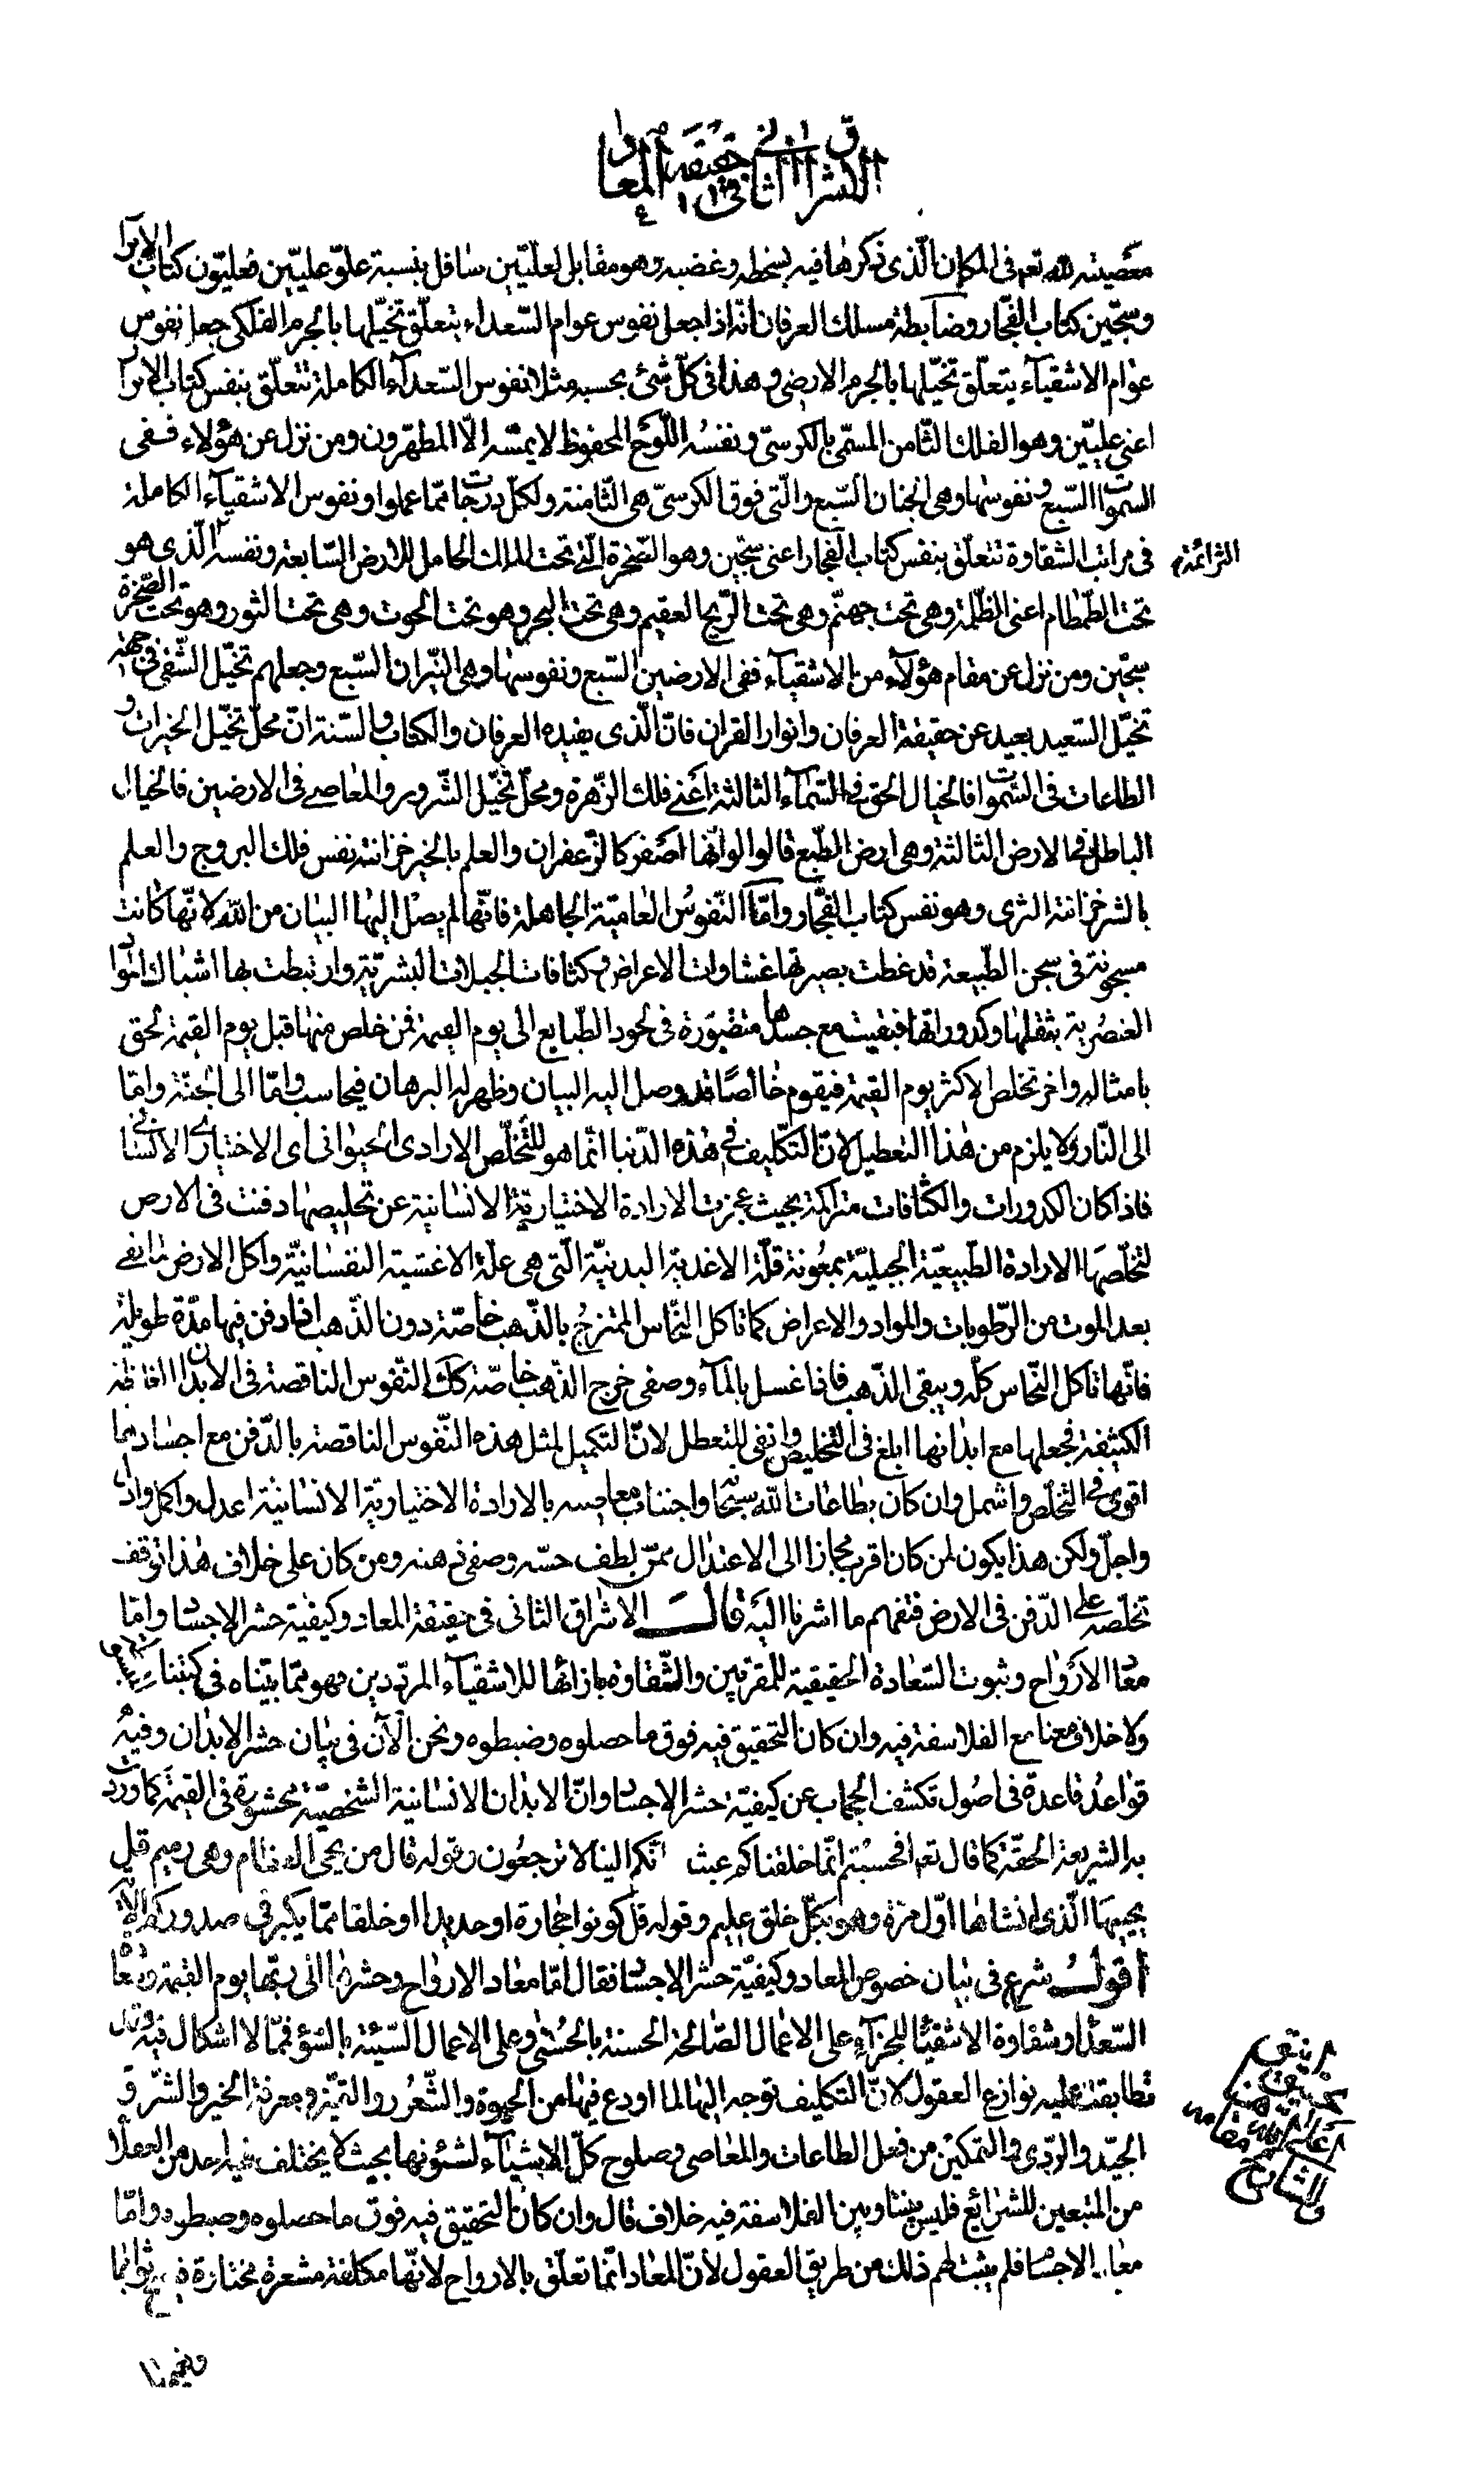 الاشراق الثانی فی حقیقة المعاد
معصیته لله تعم فی المکان الّذی ذکرها فیه بسخطه وغضبه وهو مقابل لعلّیّین سافل بنسبة علوّ علیّین فعلیّون کتاب الابرار
وسجّین کتاب الفجّار وضابطة مسلك العرفان انّه اذا جعل نفوس عوام السّعداء یتعلّق تخیّلها بالجرم الفلکی جعل نفوس
عوام الاشقیآء یتعلّق تخیّلها بالجرم الارضی وهذا فی کلّ شئ بحسبه مثلا نفوس السّعدآء الکاملة تتعلّق بنفس کتاب الابرار
اعنی علیّین وهو الفلك الثّامن المسمّی بالکرسیّ ونفسُه اللّوح المحفوظ لا یمسّه الّا المطهّرون ومن نزل عن هؤلاء ففی
السموات السّبع ونفوسها وهی الجنان السّبع والّتی فوق الکرسیّ هی الثّامنة ولکلّ درجات ممّا عملوا ونفوس الاشقیآء الکاملة
فی مراتب الشقاوة تتعلّق بنفس کتاب الفجار اعنی سجّین وهو الصّخرة الّتی تحت الملك الحامل للارض السّابعة ونفسه الّذی هو
تحت الطّمطام اعنی الظّلمة وهی تحت جهنّم وهی تحت الرّیح العقیم وهی تحت البحر وهو تحت الحوت وهی تحت الثور وهو تحت الصّخرة
سجّین ومن نزل عن مقام هؤلآء من الاشقیآء ففی الارضین السّبع ونفوسها وهی النّیران السّبع وجعلهم تخیّل الشّقی فی جهة
تخیّل السّعید بعید عن حقیقة العرفان وانوار القران فانّ الّذی یفیده العرفان والکتاب والسّنة انّ محلّ تخیّل الخیرات و
الطاعات فی السّموات فالخیال الحق فی السّمآء الثالثة اعنی فلك الزّهرة ومحلّ تخیّل الشّرور والمعاصی فی الارضین فالخیال
الباطل فی الارض الثالثة وهی ارض الطّبع قالوا لونها اصفر کالزّعفران والعلم بالخیر خزانته نفس فلك البروج والعلم
بالشر خزانته الثری وهو نفس کتاب الفجّار وامّا النّفوسُ العامیّة الجاهلة فانّها لم یصل الیها البیان من الله لانّها کانت
مسجونة فی سجن الطّبیعة قد غطت بصیرتها غشاوات الاعراض وکثافات الجبلات البشریّة وارتبطت بها اشباك
العنصُریة بثقلها وکدوراتها فبقیت مع جسدها متقبّورة فی لحود الطّبایع الی یوم القیمة فمن خلص منها قبل یوم القیمة لحق
بامثاله واخر تخلص الاکثر یوم القیمة فیقوم خالصًا قد وصل الیه البیان وظهر له البرهان فیحاسب وامّا الی الجنّة وامّا
الی النّار ولا یلزم من هذا التعطیل لانّ التکلیف فی هذه الدّنیا انّما هو للتّخلّص الارادی الحیوانی ای الاختیاری الانسانی
فاذا کان الکدورات والکثافات متراکمة بحیث عجزت الارادة الاختیاریّة الانسانیة عن تخلیصها دفنت فی الارض
لتخلّصها الارادة الطّبیعیّة الجبلیّة بمعُونة قلّة الاغذیة البدنیّة الّتی هی علّة الاغشیة النفسانیّة واکل الارض ما بقی
بعد الموت من الرّطوبات والمواد والاعراض کما تاکل النّحاس الممتزجُ بالذّهب خاصّة دون الذّهب اذا دفن فیها مدّة طویلة
فانّها تاکل النّحاس کلّه ویبقی الذّهب فاذا غسل بالمآء وصفی خرج الذّهب خاصّة کك النّفوس الناقصة فی الابدان الغلیظة
الکثیفة فجعلها مع ابدانها ابلغ فی التخلیص وانفی للتعطل لانّ التکمیل لمثل هذه النّفوس الناقصة بالدّفن مع اجسادها
اقوی فی التّخلّص واشمل وان کان بطاعات الله سبحانه واجتناب معاصیه بالارادة الاختیاریّة الانسانیّة اعدل واکمل
واجلّ ولکن هذا یکون لمن کان اقرب مجازا الی الاعتدال ممّن لطف حسّه وصفی ذهنه ومن کان علی خلاف هذا توقف
تخلّصه علی الدّفن فی الارض فتفهم ما اشرنا الیه قال الاشراق الثانی فی حقیقة المعاد وکیفیّة حشر الاجساد وامّا
معاد الأرواح وثبوت السّعادة الحقیقیة للمقرّبین والشّقاوة بازائها للاشقیآء المردودین فهو ممّا بیّناه فی کتبنا
ولا خلاف معنا مع الفلاسفة فیه وان کان التحقیق فیه فوق ما حصلوه وضبطوه ونحن الآن فی بیان حشر الابدان وفیه
قواعدُ قاعدة فی اصُول تکشف الحجاب عن کیفیّة حشر الاجساد وانّ الابدان الانسانیة الشّخصیّة محشورة فی القیمة کما وردت
به الشریعة الحقّة کما قال تعم افحسبتم انّما خلقناکم عبثا انّکم الینا لا ترجعُون وقوله قال من یحیی العظام وهی رمیم قل
یحییها الّذی انشاها اوّل مرّة وهو بکلّ خلق علیم وقوله قل کونوا حجارة او حدیدا او خلقا ممّا یکبر فی صدورکم الآیة
اقول شرع فی بیان خصوص المعاد وکیفیّة حشر الاجساد فقال امّا معاد الارواح وحشرها الی ربّها یوم القیمة وسعادة
السّعدا وشقاوة الاشقیا للجزآء علی الاعمال الصّالحة الحسنة بالحُسنی وعلی الاعمال السّیئة بالسّوء فممّا لا اشکال فیه وقد
تطابقت علیه نوازع العقول لانّ التکلیف توجه الیها لما اودع فیها من الحیوة والشّعُور والتمیّز ومعرفة الخیر والشّر و
الجیّد والرّدی والتمکین من فعل الطاعات والمعاصی وصلوح کلّ الاشیآء لشئونها بحیث لا یختلف فیه احد من العقلا
من المتبعین للشرائع فلیس بیننا وبین الفلاسفة فیه خلاف قال وان کان التحقیق فیه فوق ما حصلوه وضبطوه وامّا
معاد الاجسا فلم یثبت لهم ذلك من طریق العقول لأنّ المعاد انّما تعلّق بالارواح لانّها مکلفة مشعرة مختارة